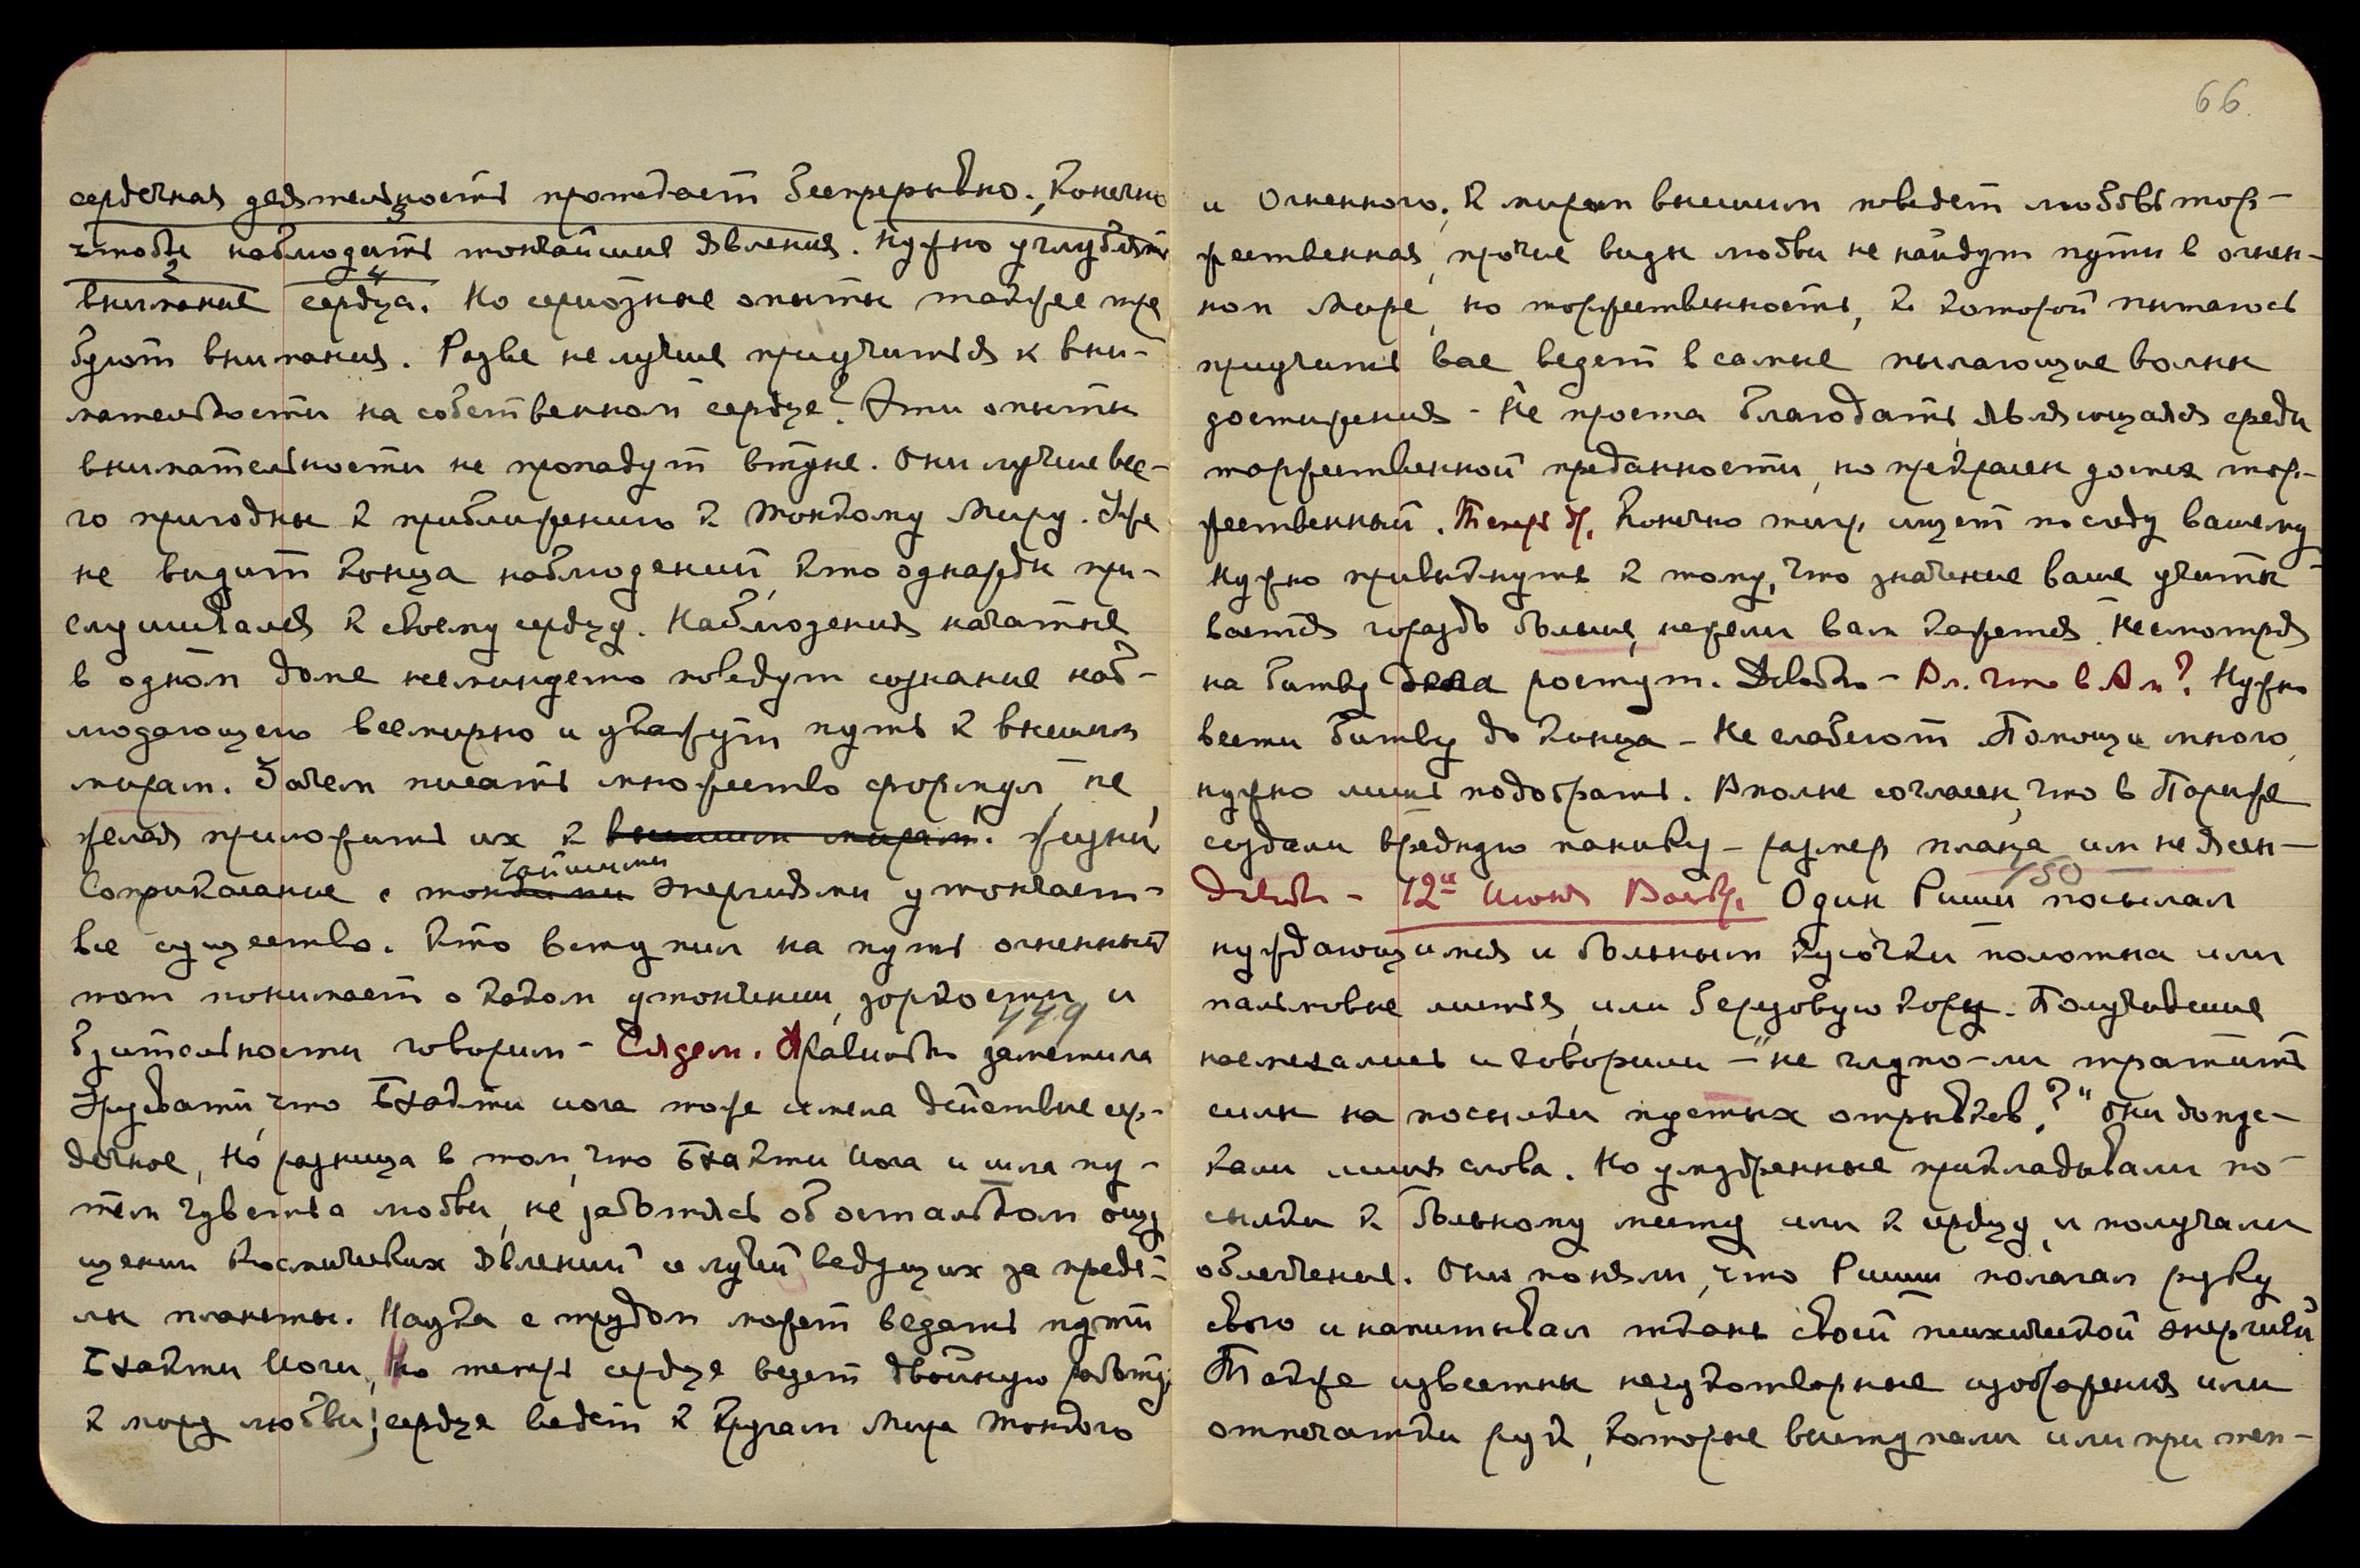 сердечная деятельность протекает беспрерывно. Конечно
3
чтобы наблюдать тончайшие явления. Нужно углублять
2 4
внимание сердца. Но серьозные опыты также тре
буют внимания. Разве не лучше приучиться к вни-
мательности на собственном сердце? Эти опыты
внимательности не пропадут втуне. Они лучше все-
го пригодны к приближению к Тонкому Миру. Уже
не видит конца наблюдений, кто однажды при-
слушивался к своему сердцу. Наблюдения начатые
в одном доме неминуемо поведут сознание наб-
людающего всемирно и укажут путь к высшим
мирам. Зачем писать множество формул, не
желая приложить их к высшим мирам. жизни,
чайшими
Соприкасание с тонкими энергиями утончает-
все существо. Кто вступил на путь огненный
тот понимает о каком утончении, зоркости и
449
бдительности говорим - Сядем. Уравновесть заметила
Урусвати, что Бхакти иога тоже имела действие сер-
дечное, но разница в том, что Бхакти Иога и шла пу-
тем чувства любви, не заботясь об остальном ощу
щении космических явлений и лучей ведущих за преде-
лы планеты. Наука с трудом может ведать пути
Бхакти Иоги, Но теперь сердце ведет двойную работу,
к миру любви; сердце ведет к кругам Мира Тонкого
66.
и Огненного; к мирам высшим поведет любовь тор-
жественная, прочие виды любви не найдут пути в огнен-
ном Мире, но торжественность, к которой пытаюсь
приучить вас ведет в самые пылающие волны
достижения - Не проста благодать являющаяся среди
торжественной преданности, но прекрасен доспех тор-
жественный. Теперь др. Конечно тигр ищет по следу вашему
Нужно привыкнуть к тому, что значение ваше учиты
вается гораздо больше, нежели вам кажется. Несмотря
на битву дела ростут. Довольно - Вл. что в Ам? Нужно
вести битву до конца - Не слабеют. Помощи много,
нужно лишь подобрать. Вполне согласен, что в Париже
создали вредную панику - размер плана им не ясен -
150
Довольно - 12е Июня Воскр. Один Риши посылал
нуждающимся и больным кусочки полотна или
пальмовые листья, или березовую кору. Получившие
насмехались и говорили - "не чудно-ли тратить
силы на посылки пустых отрывков?" Они допус-
кали лишь слова. Но умудренные прикладывали по-
сылки к больному месту или к сердцу и получали
облегчение. Они поняли, что Риши полагал руку
свою и напитывал ткань своей психической энергией
Также известны нерукотворные изображения или
отпечатки рук, которые выступали или при теп-